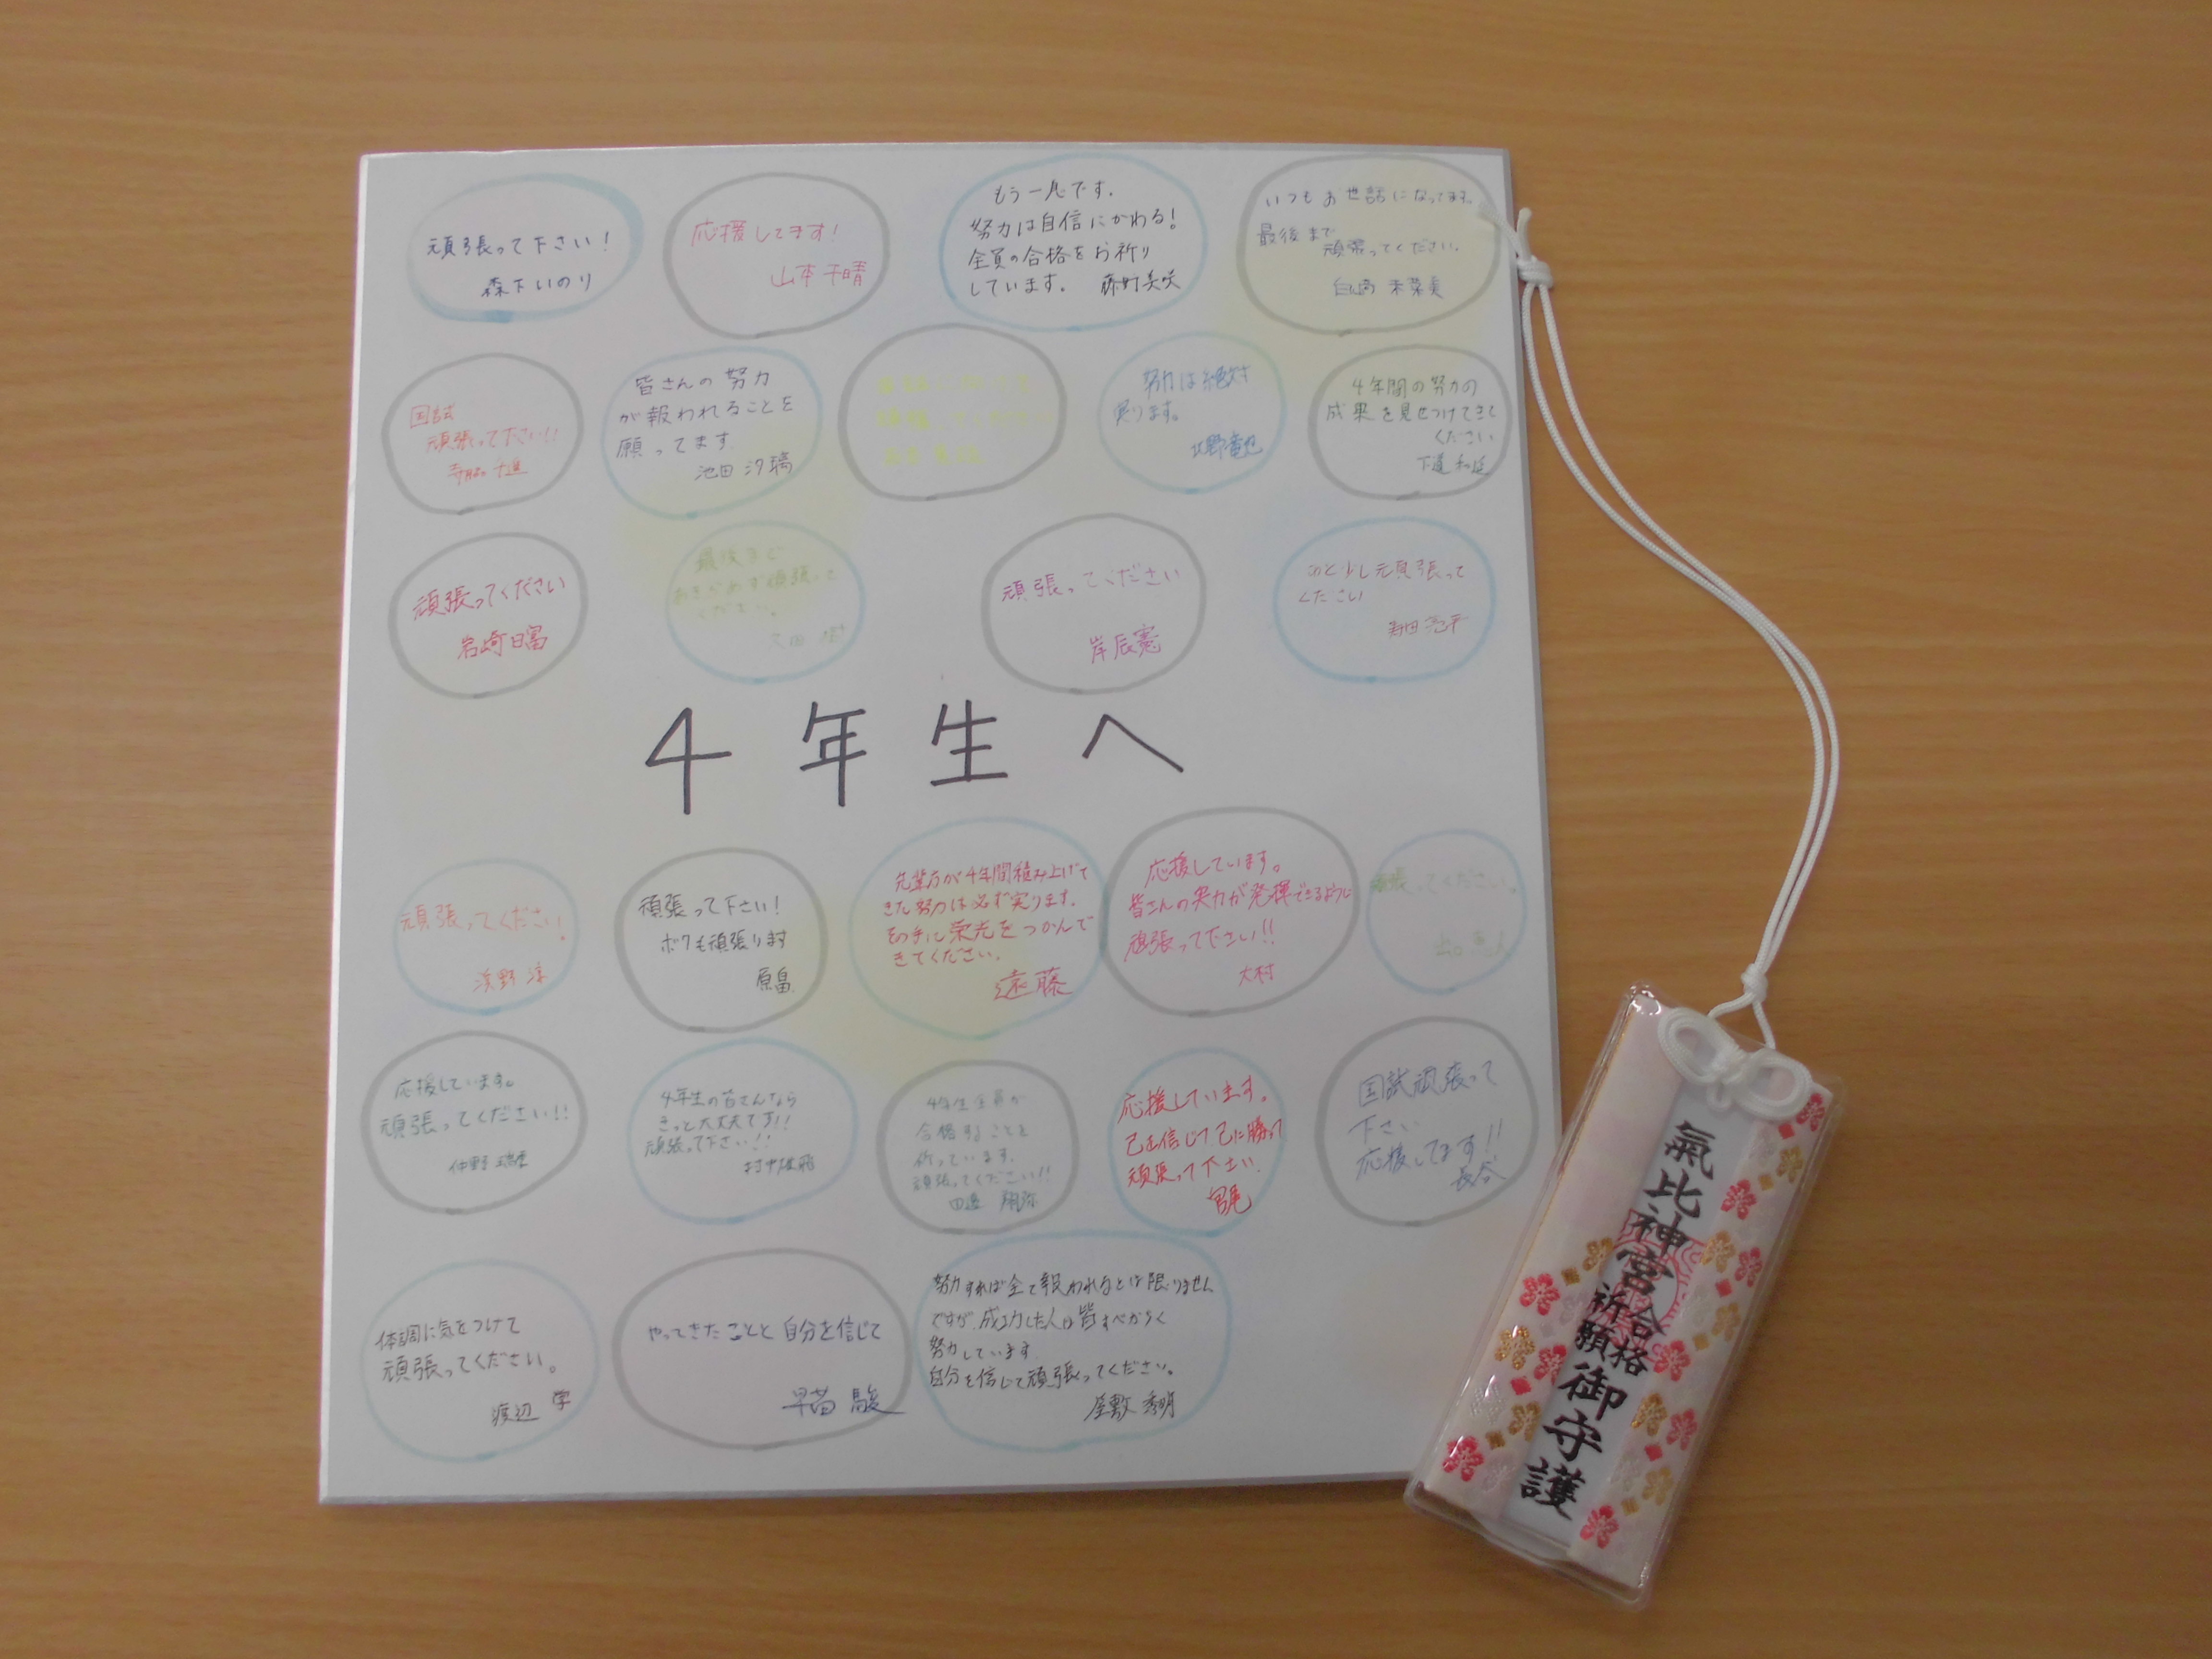 頑張って下さい!
森下いのり
応援してます!
山本 千晴
もう一息です.
努力は自信にかわる!
全員の合格をお祈り
しています。
美咲
いつもお世話になってます。
最後まで
頑張ってください.
白崎 未菜美
国試
頑張って下さい!!
皆さんの努力
が報われることを
願ってます.
池田 汐璃
努力は絶対
実ります。
北野竜也
4年間の努力の
成果を見せつけてきて
ください
頑張ってください
岩崎日富
最後まで
あきらめず頑張って
ください。
頑張ってください
岸辰憲
あと少し頑張って
ください
4年生へ
頑張ってください!
浜野 淳
頑張って下さい!
ボクも頑張ります
原畠
先輩方が4年間積み上げて
きた努力は必ず実ります.
その手に栄光をつかんで
きてください.
遠藤
応援しています。
皆さんの実力が発揮できるように
頑張って下さい!!
大村
頑張ってください。
応援しています。
頑張ってください!!
仲野
4年生の皆さんなら
きっと大丈夫です!!
頑張って下さい!!
4年生全員が
合格することを
祈っています.
頑張ってください!!
田邉
応援しています.
己を信じて己に勝って
頑張って下さい.
宮尾
国試頑張って
下さい
応援してます!!
長谷
体調に気をつけて
頑張ってください。
渡辺 学
やってきたことと自分を信じて
早苗 駿
努力すれば全て報われるとは限りません
ですが、成功した人は皆すべからく
努力しています
自分を信じて頑張ってください。
屋敷 秀明
氣比神宮
合格
祈願
御守護